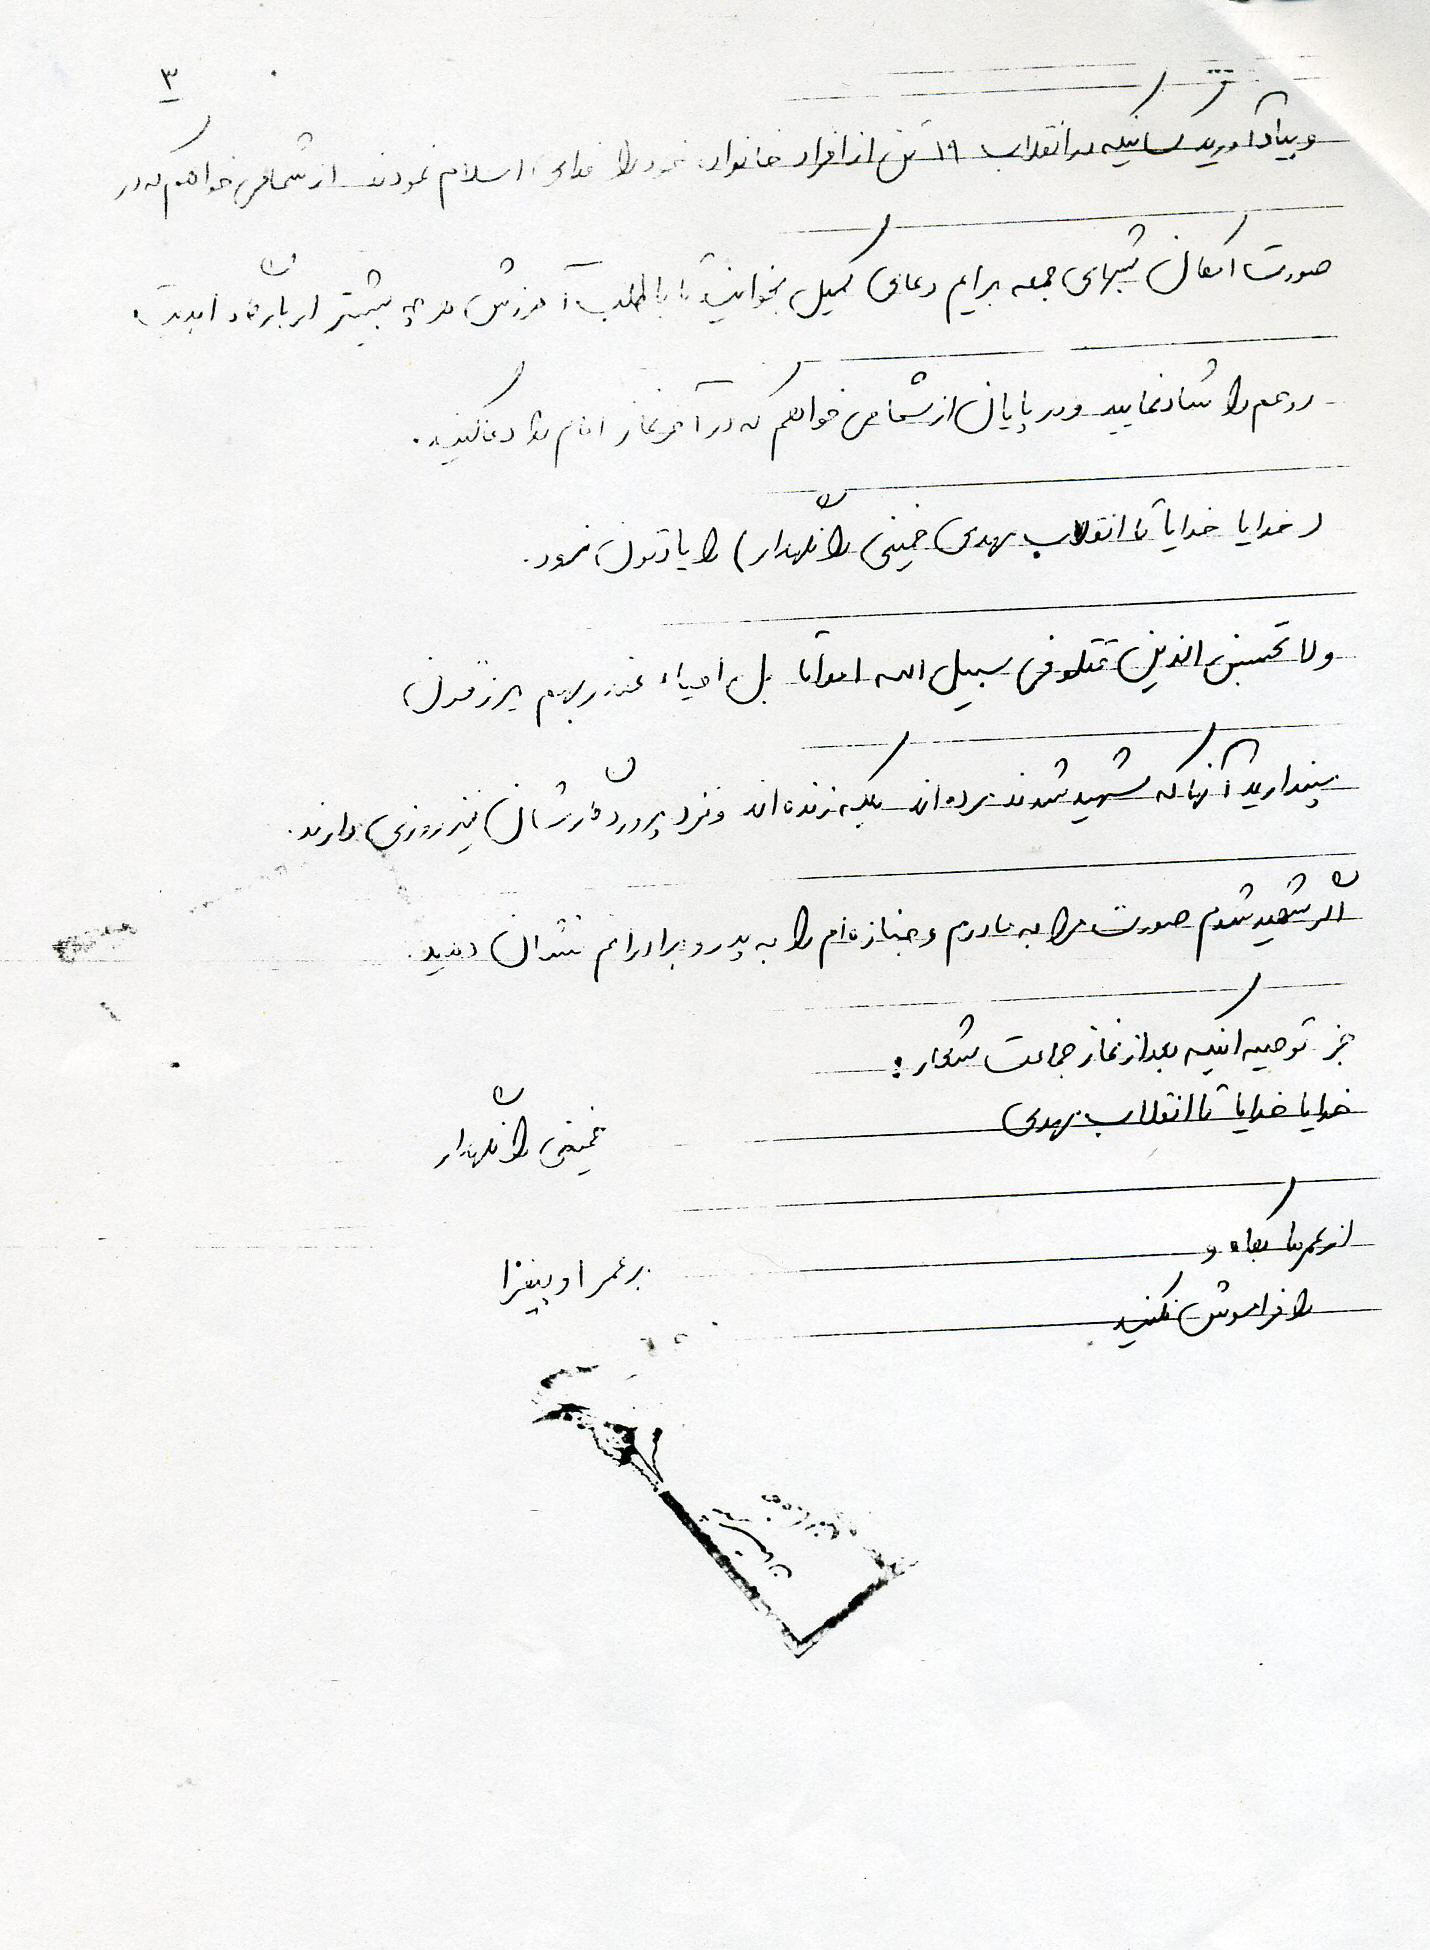 ۳
و بیاد آورید کسانیکه در انقلاب ۱۹ تن از افراد خانواده خود را فدای اسلام نمودند از شما می خواهم که در
صورت امکان شبهای جمعه برایم دعای کمیل بخوانید تا با طلب آمرزش هر چه بیشتر از بارگاه ابدیت
روحم را شاد نمایید و در پایان از شما می خواهم که در آخر نماز امام را دعا کنید.
(خدایا خدایا تا انقلاب مهدی خمینی را نگهدار) را یادتون نرود.
ولا تحسبن الذین قتلو فی سبیل الله امواتا بل احیاء عند ربهم یرزقون
نپندارید آنها که شهید شدند مرده اند بلکه زنده اند و نزد پروردگارشان نیز روزی دارند.
اگر شهید شدم صورت مرا به مادرم و جنازه ام را به پدر و برادرانم نشان دهید.
توصیه اینکه بعد از نماز جماعت شعار:
خدایا خدایا تا انقلاب مهدی خمینی را نگهدار
از عمر ما بکاه و بر عمر او بیفزا
را فراموش نکنید